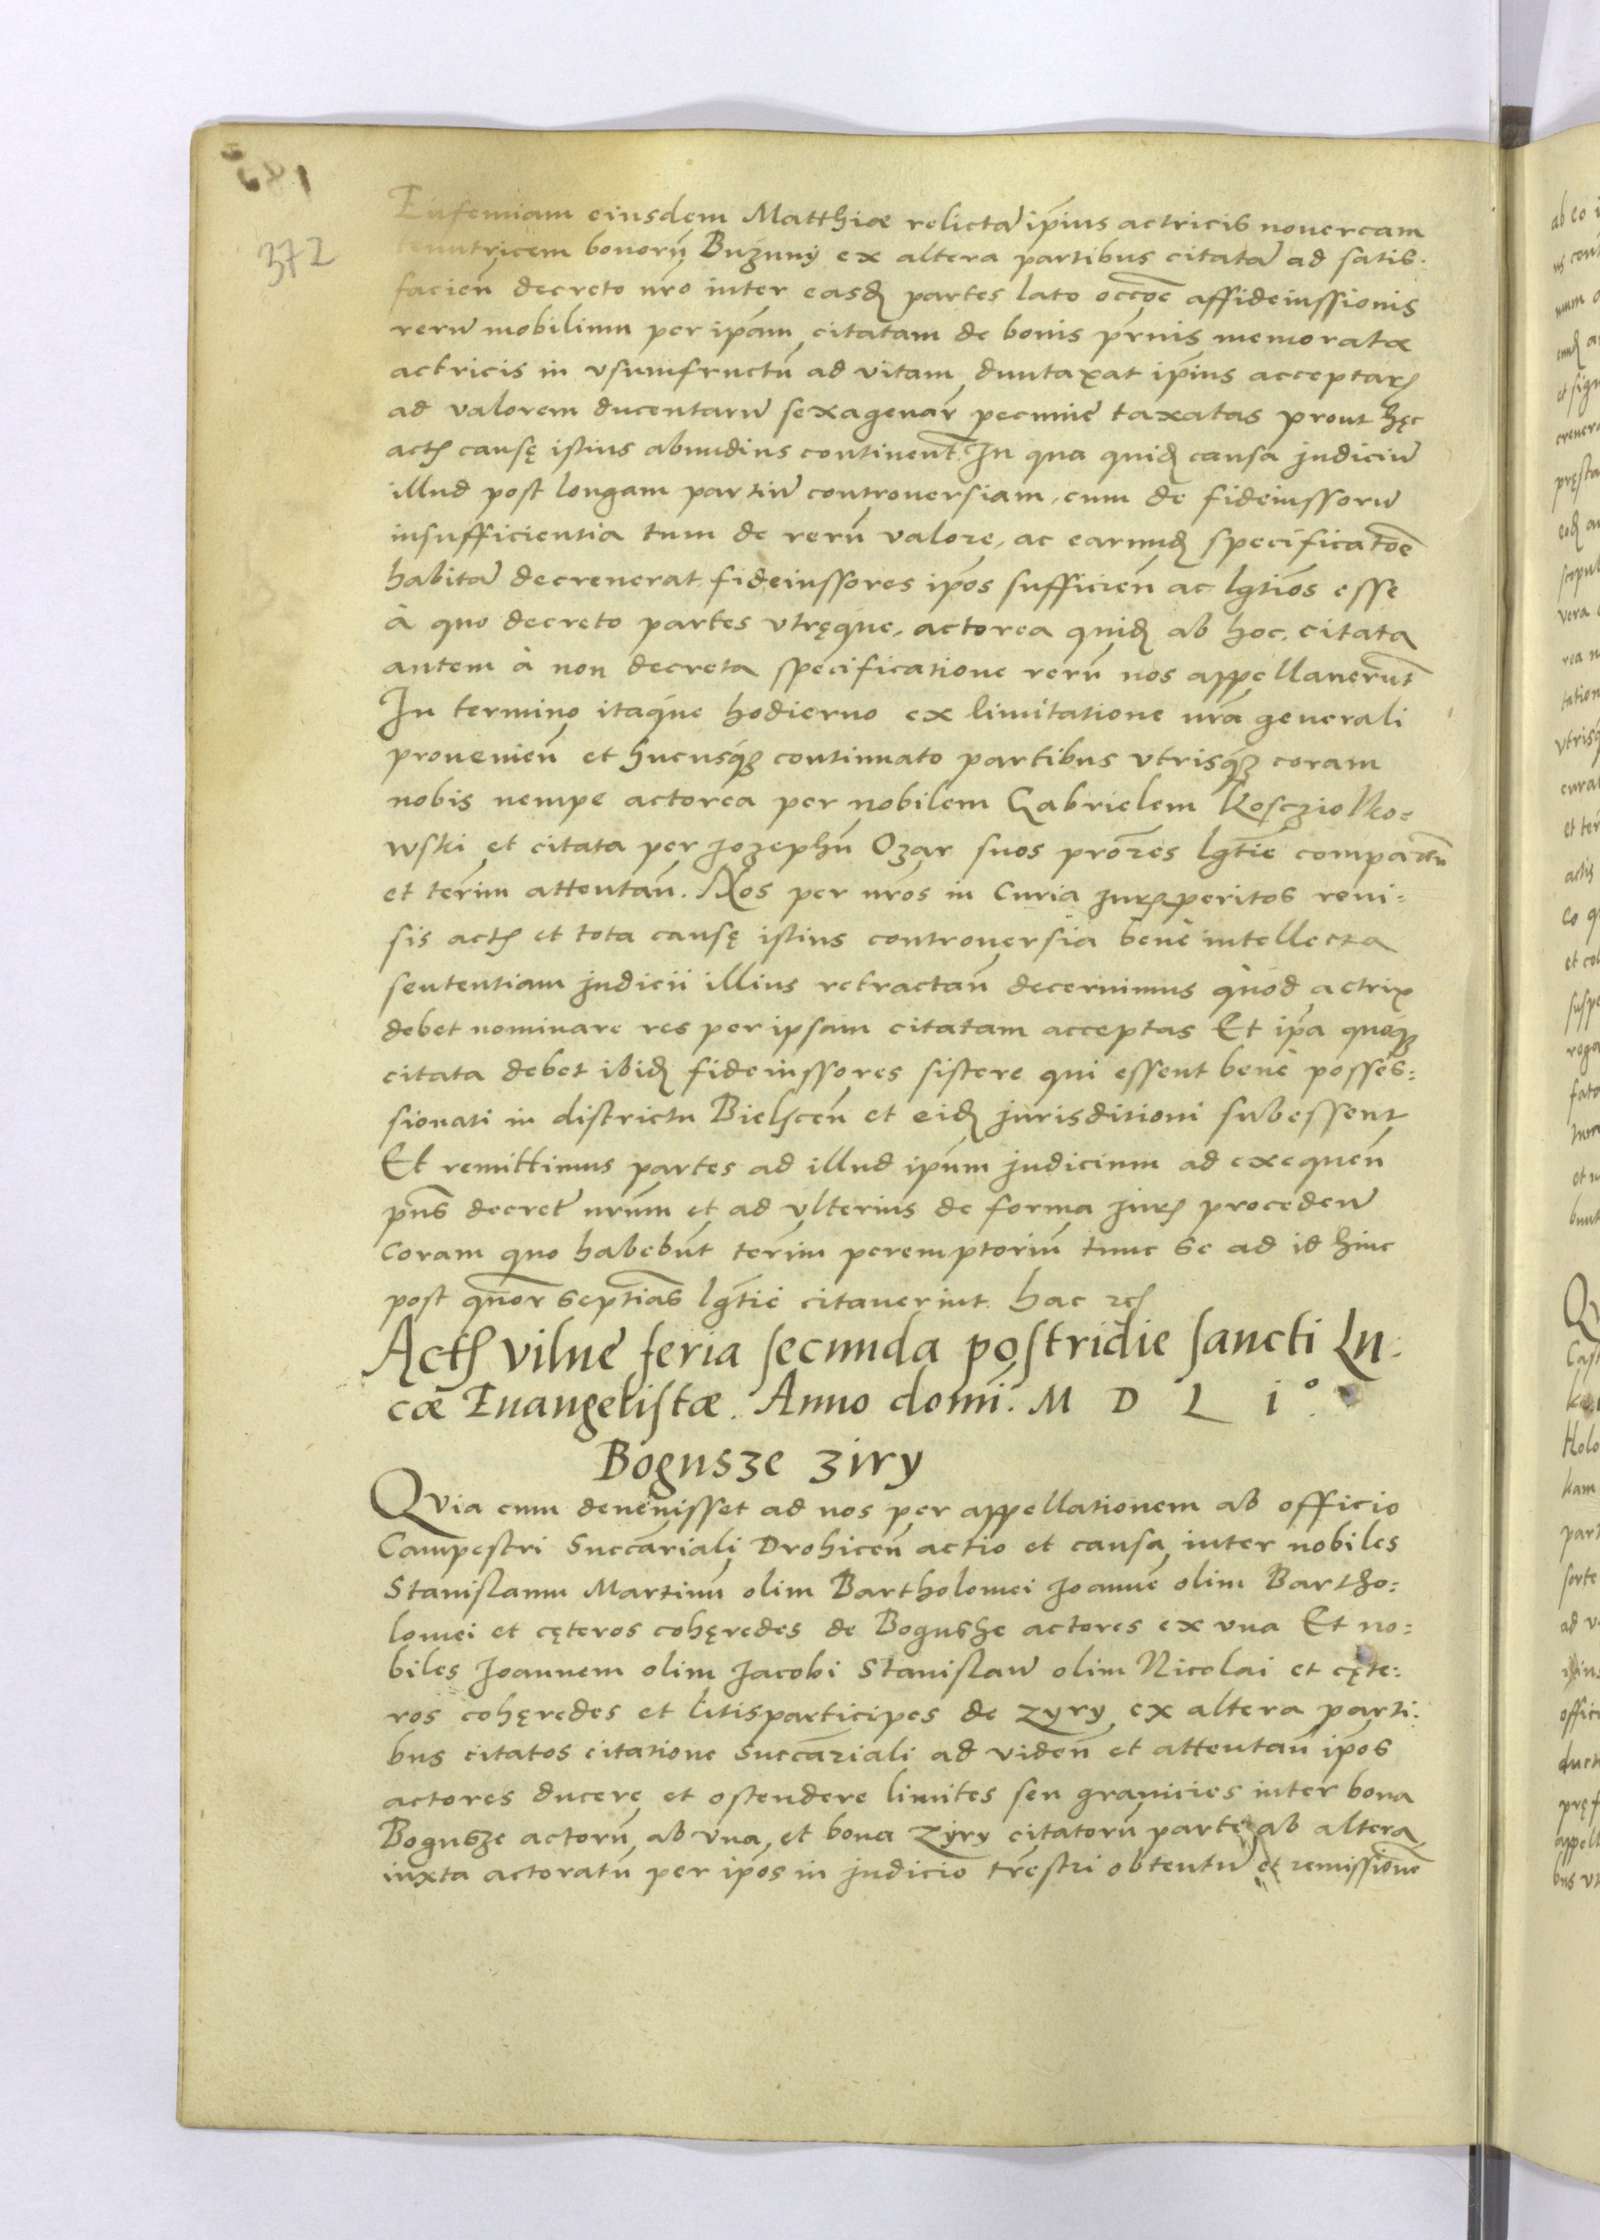 372
Eufemiam eiusdem Matthiæ relictā ip̄ius actricis nouercam
tenutricem bonorū Buzuny ex altera partibus citatā ad satis-
facien̄ decreto nr̄o inter easd̨ partes lato occōe affideiussionis
rerū mobilium per ip̄am citatam de bonis pr̄nis memoratæ
actricis in vsumfructū ad vitam duntaxat ip̄ius acceptar̨
ad valorem ducentarū sexagenar̄ pecuniē taxatas prout hęc
act̨ causę istius abundius continent. In qua quid̨ causa judiciū
illud post longam partiū controuersiam, cum de fideiussorū
insufficientia tum de rerū valore, ac earund̨ specificatōe
habitā decreuerat fideiussores ip̄os sufficien̄ ac lḡtiōs esse
à quo decreto partes vtręque, actorea quid̨ ab hoc, citata
autem à non decreta specificatione rerū nos appellauerūt
In termino itaque hodierno ex limitatione nr̄a generali
prouenien̄ et hucusq̨ continuato partibus vtrisq̨ coram
nobis nempe actorea per nobilem Gabrielem Koscziolko-
wski et citata per Jozephū Ozar suos prōres lḡtie compar̄tū
et ter̄im attentan̄. Nos per nr̄os in Curia Jur̨peritos reui-
sis act̨ et tota causę istius controuersia bene intellecta
sententiam judicii illius retractan̄ decernimus quòd actrix
debet nominare res per ipsam citatam acceptas Et ip̄a quoq̨
citata debet ibid̨ fideiussores sistere qui essent bene posses-
sionati in districtu Bielscen̄ et eid̨ jurisditioni subessent
Et remittimus partes ad illud ip̄um judicium ad exequen̄
pn̄s decret̄ nr̄um et ad vlterius de forma jur̨ procedēn
coram quo habebūt ter̄im peremptoriū tunc se ad id hinc
post quor̄ septīas lḡtie citauerint. hac rc̨
Act̨ vilne feria secunda postridie sancti Lu-
cæ Euangelistæ. Anno domī. M D L i°.
Bogusze ziry
Qvia cum deuenisset ad nos per appellationem ab officio
Campestri Succar̄iali Drohicen̄ actio et causa inter nobiles
Stanislaum Martinū olim Bartholomei Joannē olim Bartho-
lomei et cęteros cohęredes de Bogusze actores ex vna Et no-
biles Joannem olim Jacobi Stanislaū olim Nicolai et cęte-
ros cohęredes et litisparticipes de zyry ex altera parti-
bus citatos citatione Succar̄iali ad viden̄ et attentan̄ ip̄os
actores ducere et ostendere limites seu granicies inter bona
Bogusze actorū, ab vna, et bona Zyry citatorū parte ab altera
iuxta actoratū per ip̄os in judicio tr̄estri obtentū et remissione